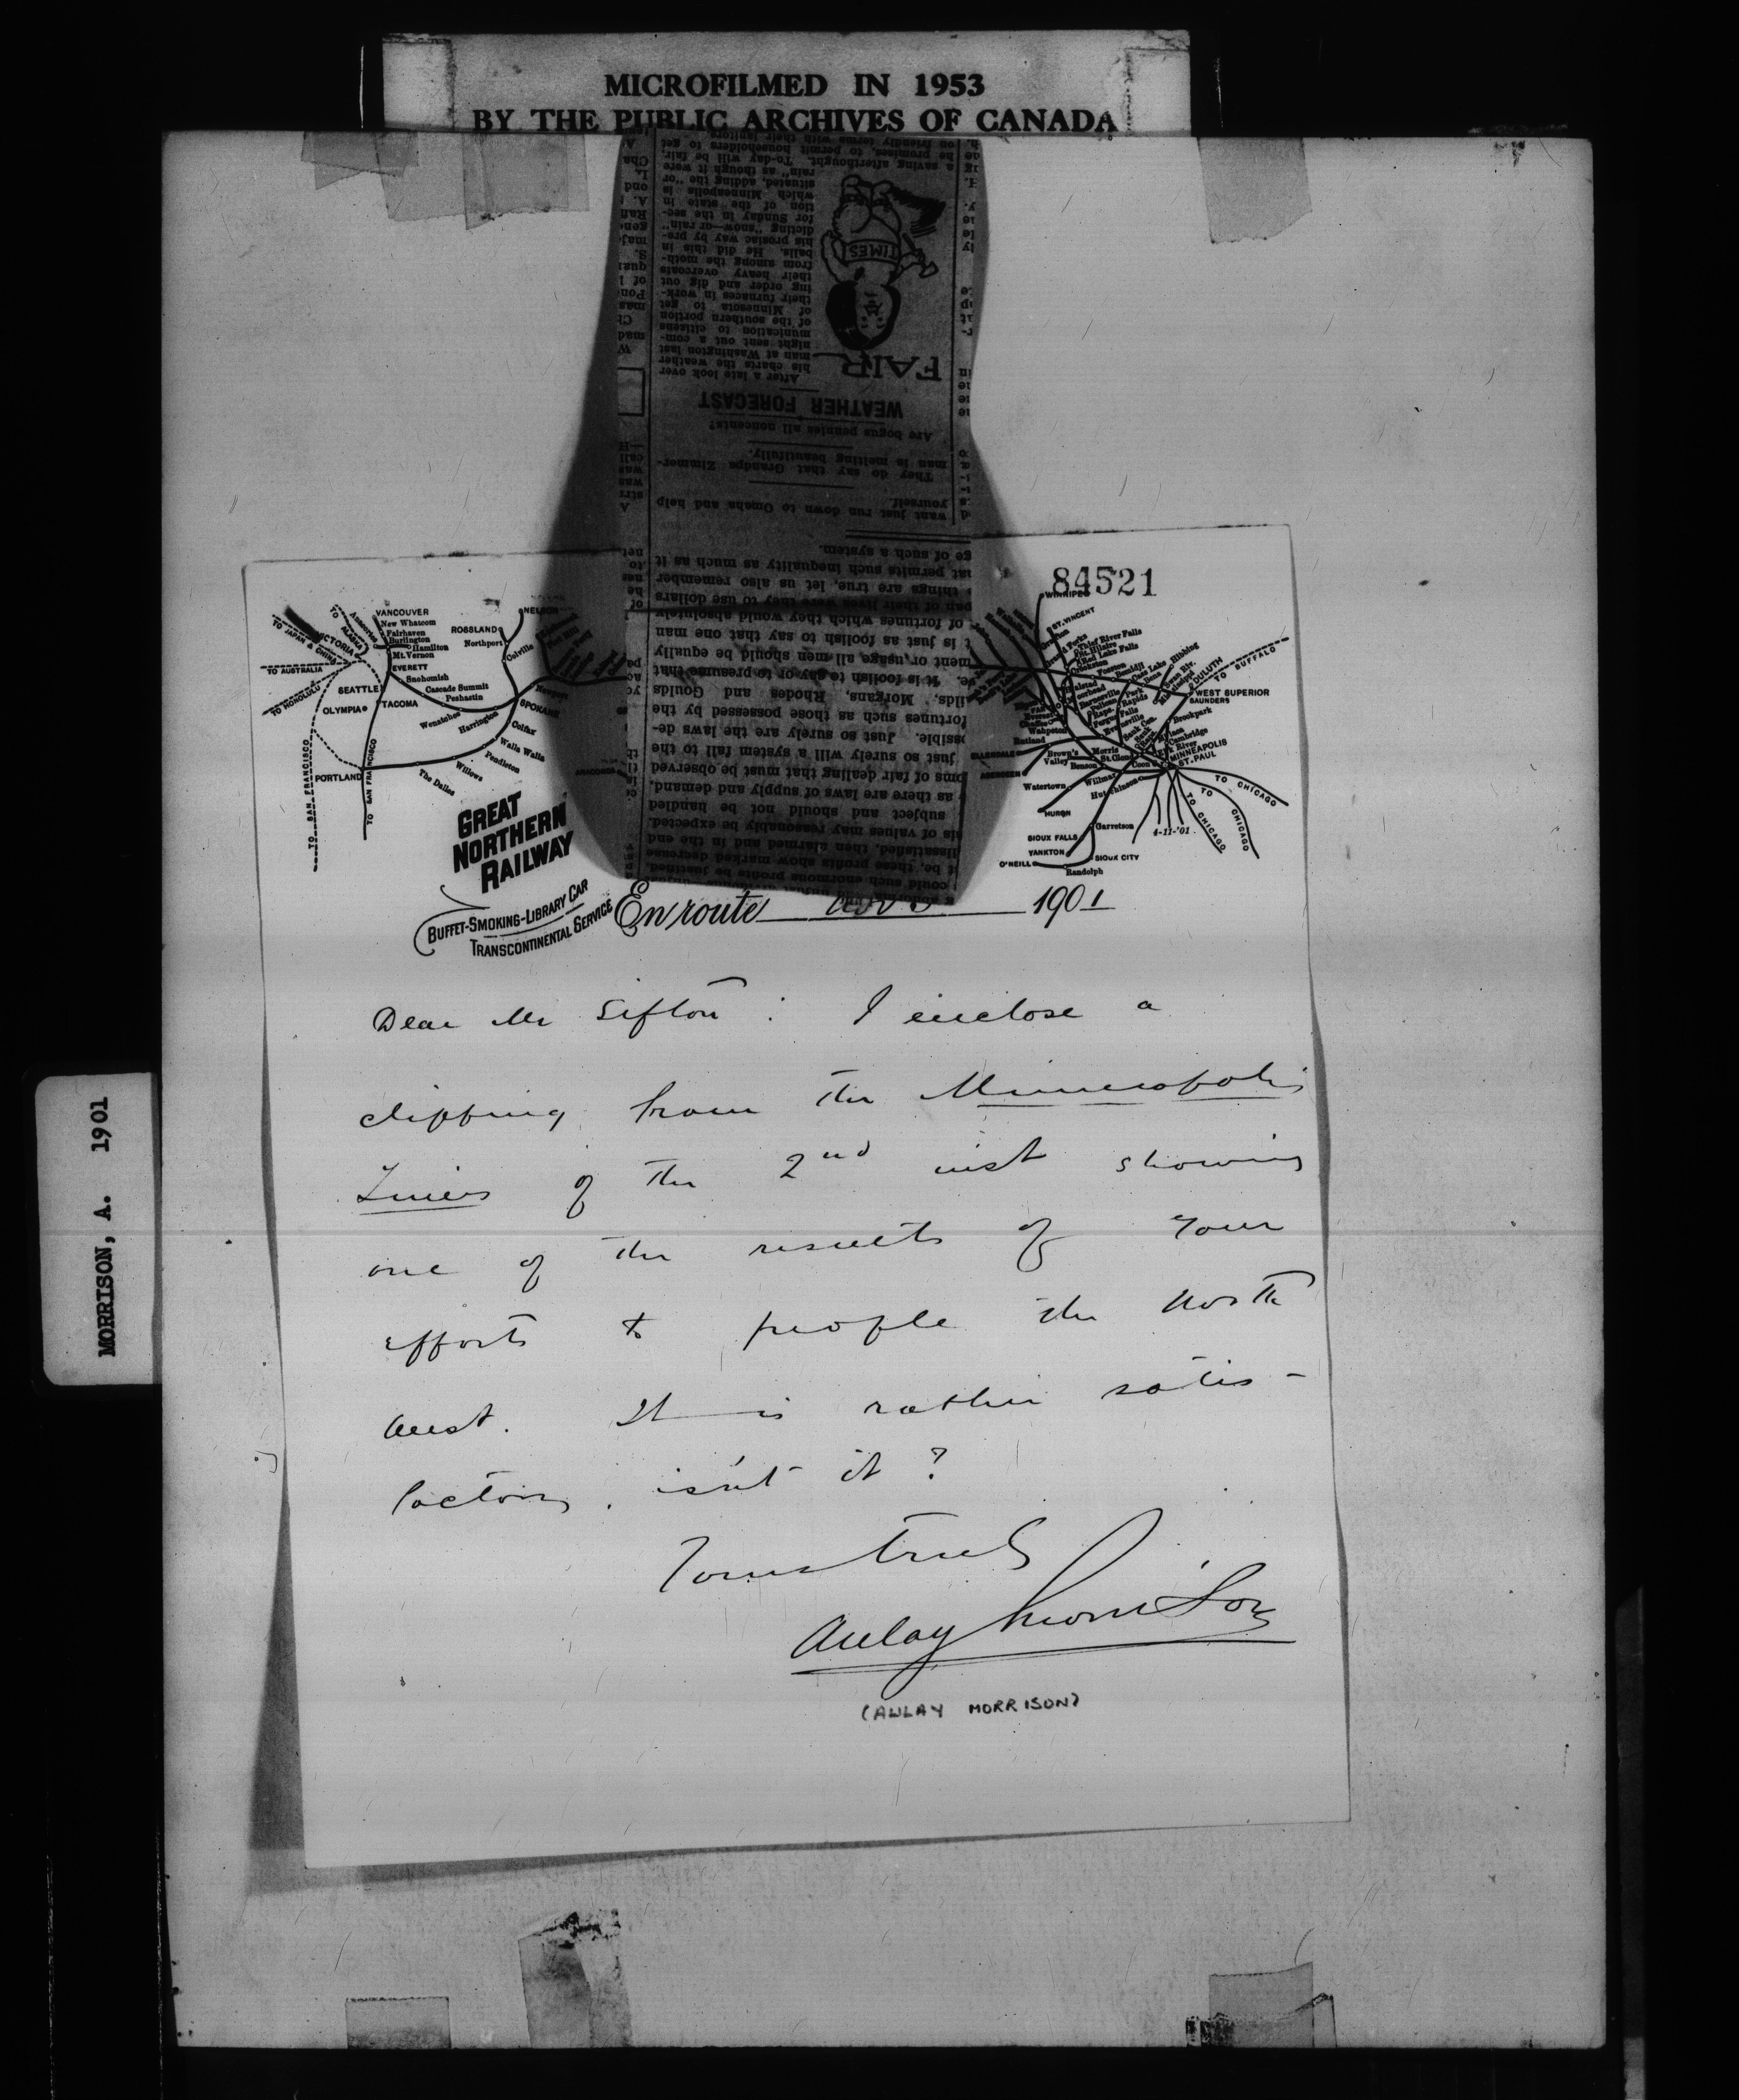 MICROFILMED IN 1953
BY THE PUBLIC ARCHIVES OF CANADA
MORRISON, A. 1901
on friendly terms with their janitors.
he promises, to permit householders to get
a saving afterthought. To-day will be fair,
rain" as though it were
situated, adding the "or
which Minneapolis is
tion of the state in
for Sunday in the sec-
dicting "snow—or rain"
his prosiac way by pre-
balls. He did this in
from among the moth-
their heavy overcoats
ing order and dig out
their furnaces in work-
of Minnesota to get
of the southern portion
munication to citizens
night sent out a com-
man at Washington last
his charts the weather
After a late look over
TIMES
FAIR
WEATHER FORECAST
Are bogus pennies all noncents?
man is melting beautifully.
They do say that Grandpa Zimmer-
yourself.
want just run down to Omaha and help
ge of such a system.
at permits such inequality as much as it
things are true, let us also remember
pan of their lives were they to use dollars
of fortunes which they would absolutely
t is just as foolish to say that one man
ment or usage, all men should be equally
It is foolish to say or to presume that
ilds, Morgans, Rhodes and Goulds
fortunes such as those possessed by the
ssible. Just so surely are the laws de-
just so surely will a system fall to the
oms of fair dealing that must be observed
as there are laws of supply and demand,
subject and should not be handled
is of values may reasonably be expected.
lissatisfied, then alarmed and in the end
t be, these profits show marked decrease
could such enormous profits be justified,
84521
VANCOUVER
New Whatcom
Fairhaven
Burlington
Hamilton
Mt. Vernon
Anacortes
TO ALASKA
VICTORIA
TO JAPAN & CHINA
TO AUSTRALIA
TO HONOLULU
EVERETT
Snohomish
Cascade Summit
Peshastin
SEATTLE
TACOMA
OLYMPIA
Wenatchee
Harrington
NELSON
ROSSLAND
Northport
Colville
Newport
SPOKANE
Colfax
Walla Walla
Pendleton
Willows
The Dalles
PORTLAND
TO SAN FRANCISCO
TO SAN FRANCISCO
ANACONDA
WINNIPEG
ST. VINCENT
Thief River Falls
St. Hilaire
Red Lake Falls
Crookston
Fosston
Bemidji
Cass Lake
Bena
Hibbing
Swan Riv.
DULUTH
TO BUFFALO
WEST SUPERIOR
SAUNDERS
Brookpark
Cambridge
Elk River
MINNEAPOLIS
ST. PAUL
Wahpeton
Rutland
ELLENDALE
ABERDEEN
Brown's Valley
Morris
Benson
St. Cloud
Willmar
Hutchinson
Watertown
HURON
SIOUX FALLS
Garretson
YANKTON
O'NEILL
SIOUX CITY
Randolph
4-11-'01
TO CHICAGO
TO CHICAGO
TO CHICAGO
GREAT
NORTHERN
RAILWAY
BUFFET-SMOKING-LIBRARY CAR
TRANSCONTINENTAL SERVICE
En route 1901
Dear Mr Sifton : I enclose a
clipping from the Minneapolis
Times of the 2nd inst showing
one of the results of your
efforts to people the North
West. It is rather satis-
factory, isn't it ?
Yours truly
Aulay Morrison
(AULAY MORRISON)